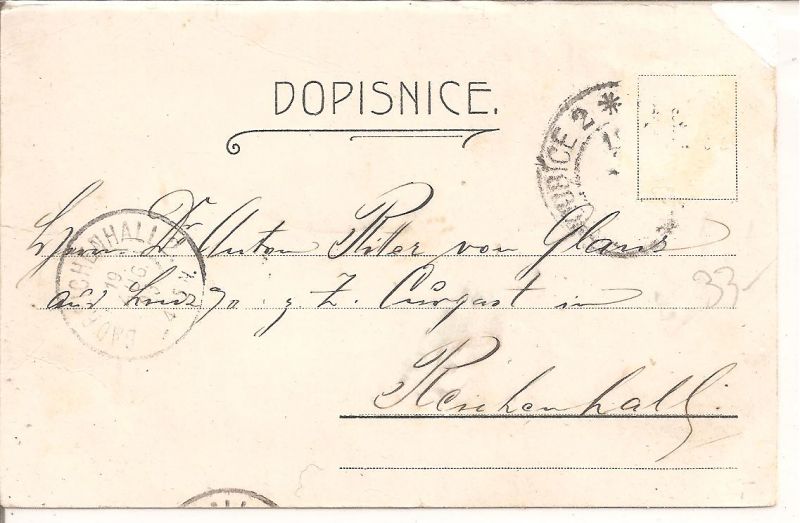 DOPISNICE.
DICE 2 *
BAD REICHENHALL
19
Herrn Dr Anton Ritter von Glans
aus z. Z. Curgast in
33-
Reichenhall.